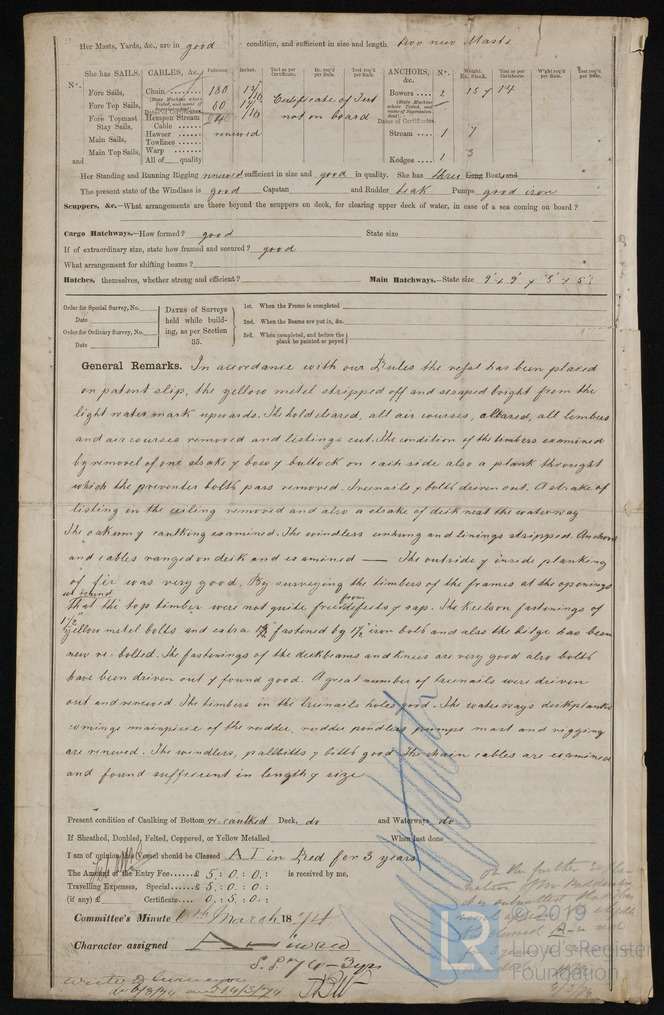 Her Masts, Yards, &c., are in good condition, and sufficient in size and length. Two new Masts
She has SAILS. CABLES, &c. Fathoms. Inches. Test as per Certificate. In. req'd per Rule. Test req'd per Rule. ANCHORS, &c. Nº. Weight. Ex. Stock. Test as per Certificate. W'ght req'd per Rule. Test req'd per Rule.
Nº.
Fore Sails, Chain 180 Certificate of Test Bowers 2
(State Machine where Tested, and name of Superintendent).
Fore Top Sails, 60 not on board
Dates of Certificates
Fore Topmast Stay Sails, Hempen Stream Cable
Main Sails, Hawser renewed Stream 1 7
Towlines
Main Top Sails, Warp
and All of quality Kedges 1 3
Her Standing and Running Rigging renewed sufficient in size and good in quality. She has three Long Boat and
The present state of the Windlass is good Capstan and Rudder teak Pumps good iron
Scuppers, &c.—What arrangements are there beyond the scuppers on deck, for clearing upper deck of water, in case of a sea coming on board?
Cargo Hatchways.—How formed? good State size
If of extraordinary size, state how framed and secured? good
What arrangement for shifting beams?
Hatches, themselves, whether strong and efficient? Main Hatchways.—State size
Order for Special Survey, No.
Date
Order for Ordinary Survey, No.
Date
DATES of Surveys held while building, as per Section 35.
1st. When the Frame is completed
2nd. When the Beams are put in, &c.
3rd. When completed, and before the plank be painted or payed
General Remarks. In accordance with our Rules the vessel has been placed
on patent slip, the yellow metal stripped off and scraped bright from the
light water mark upwards. The hold cleared, all air courses, cleared, all limbers
and air courses removed and listings cut. The condition of the timbers examined
by removel of one strake y bow y buttock on each side also a plank throught
which the preventer bolts pass removed. Treenails y bolts driven out. A strake of
listing in the ceiling removed and also a strake of deck next the waterway
The oakum y caulking examined. The windless unhung and linings stripped. Anchors
and cables ranged on deck and examined — The outside y inside planking
of fir was very good. By surveying the timbers of the frames at the openings
That the top timber were not quite free from defects y saps. The keelson fastenings of
yellow metal bolts and extra fastened by 1½" iron bolts and also the bilge has been
new re-bolted. The fastenings of the deckbeams and knees are very good also bolts
have been driven out y found good. A great number of treenails were driven
out and renewed. The timbers in the treenails holes good. The waterways deckplanks
comings mainpiece of the rudder, rudder pendlers pumps mast and rigging
are renewed. The windless, pallbitts y bitts good. The chain cables are examined
and found suffecient in length y size
Present condition of Caulking of Bottom re. caulked Deck, do and Waterways do
If Sheathed, Doubled, Felted, Coppered, or Yellow Metalled When last done
I am of opinion this Vessel should be Classed A I in Red for 3 years
The Amount of the Entry Fee £ 5 : 0 : 0 : is received by me,
Travelling Expenses, Special £ 5 : 0 : 0 :
(if any) £ Certificate 0 : 5 : 0 :
Committee's Minute 6th March 1874
Character assigned A in red
© 2019
Lloyd's Register
Foundation